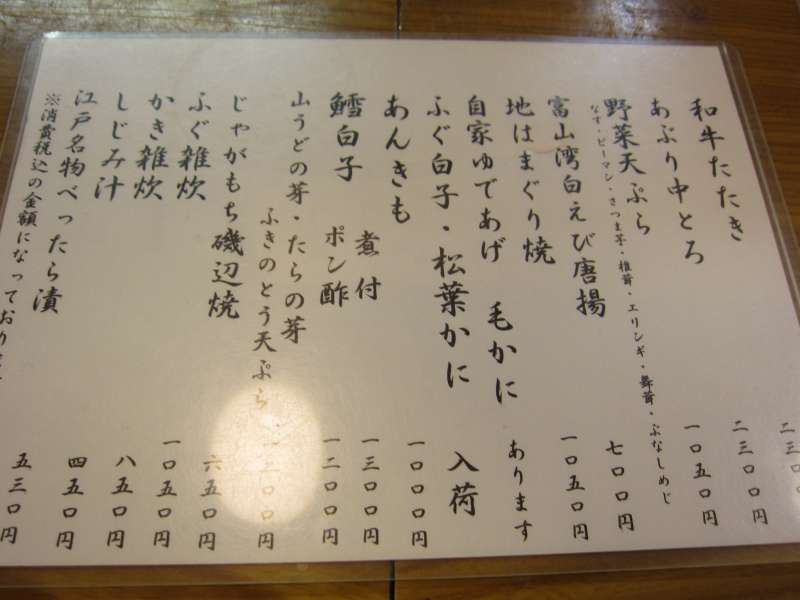 和牛たたき 二三〇
あぶり中とろ 二三〇〇円
野菜天ぷら 一〇五〇円
なす・ピーマン・さつま芋・椎茸・エリンギ・舞茸・ぶなしめじ
富山湾白えび唐揚 七〇〇円
地はまぐり焼 一〇五〇円
自家ゆであげ 毛かに あります
ふぐ白子・松葉かに 入荷
あんきも 一〇〇〇円
鱈白子 煮付 一三〇〇円
ポン酢 一二〇〇円
山うどの芽・たらの芽
ふきのとう天ぷら 〇〇円
じゃがもち磯辺焼 六五〇円
ふぐ雑炊 一〇五〇円
かき雑炊 八五〇円
しじみ汁 四五〇円
江戸名物べったら漬 五三〇円
※消費税込の金額になっており